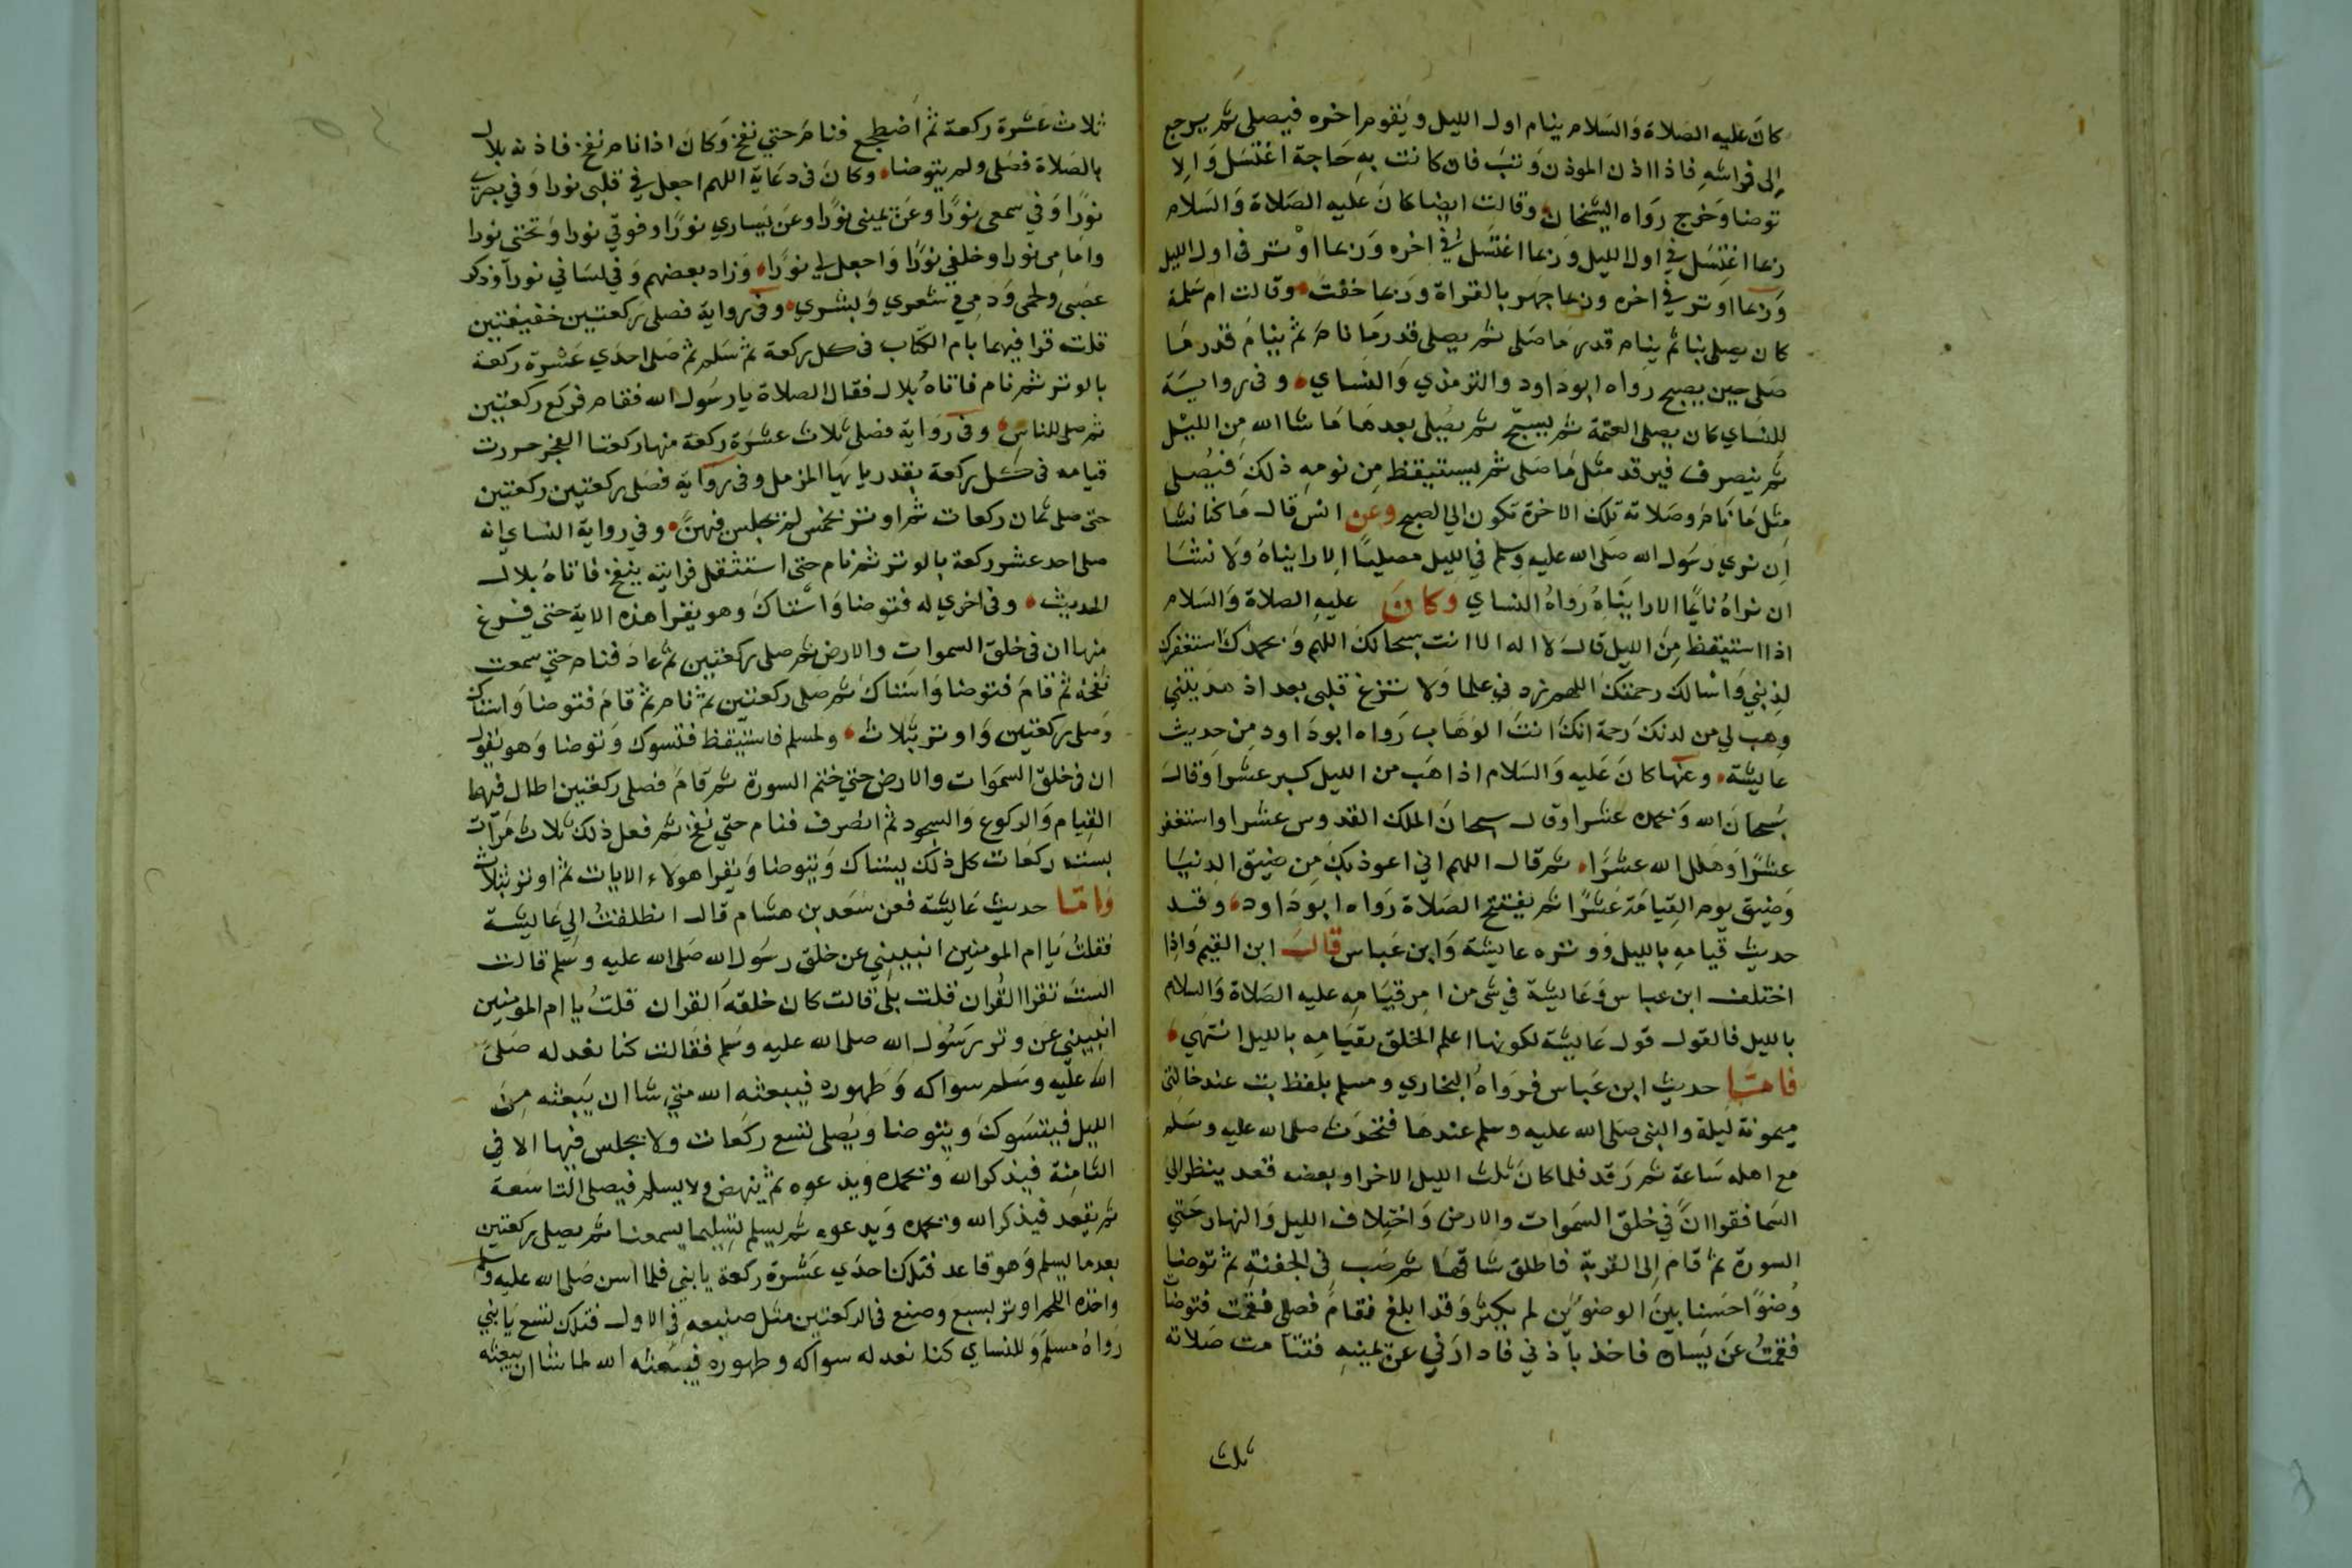 كان عليه الصلاة والسلام ينام اول الليل ويقوم اخره فيصلى ثم يرجع
الى فراشه فاذا اذن الموذن وثب فان كانت به حاجة اغتسل والا
توضا وخرج رواه الشيخان وقالت ايضا كان عليه الصلاة والسلام
ربما اغتسل في اول الليل وربما اغتسل في اخره وربما اوتر فى اول الليل
وربما اوتر في اخره وربما جهر بالقراة وربما خفت وقالت ام سلمة
كان يصلى بنا ثم ينام قدر ما صلى ثم يصلى قدر ما نام ثم ينام قدر ما
صلى حين يصبح رواه ابو داود والترمذي والنساي وفى رواية
للنساي كان يصلى العتمة ثم يسبح ثم يصلى بعدها ما شا الله من الليل
ثم ينصرف فيرقد مثل ما صلى ثم يستيقظ من نومه ذلك فيصلى
مثل ما نام وصلاته تلك الاخرة تكون الى الصبح وعن انس قال ما كنا نشا
ان نرى رسول الله صلى الله عليه وسلم في الليل مصليا الا رايناه ولا نشا
ان نراه نايما الا رايناه رواه النساي وكان عليه الصلاة والسلام
اذا استيقظ من الليل قال لا اله الا انت سبحانك اللهم وبحمدك استغفرك
لذنبي واسالك رحمتك اللهم زدني علما ولا تزغ قلبى بعد اذ هديتني
وهب لي من لدنك رحمة انك انت الوهاب رواه ابو داود من حديث
عايشة وعنها كان عليه والسلام اذا هب من الليل كبر عشرا وقال
سبحان الله وبحمده عشرا وقال سبحان الملك القدوس عشرا واستغفر
عشرا وهلل الله عشرا ثم قال اللهم اني اعوذ بك من ضيق الدنيا
وضيق يوم القيامة عشرا ثم يفتتح الصلاة رواه ابو داود وقد
حديث قيامه بالليل ووتره عايشة وابن عباس قال ابن القيم واذا
اختلف ابن عباس وعايشة في شى من امر قيامه عليه الصلاة والسلام
بالليل فالقول قول عايشة لكونها اعلم الخلق بقيامه بالليل انتهي
فاما حديث ابن عباس فرواه البخاري ومسلم بلفظ بت عند خالتى
ميمونة ليلة والنبى صلى الله عليه وسلم عندها فتحدث صلى الله عليه وسلم
مع اهله ساعة ثم رقد فلما كان ثلث الليل الاخر او بعضه قعد ينظر الى
السما فقرا ان في خلق السموات والارض واختلاف الليل والنهار حتى
السورة ثم قام الى القربة فاطلق شناقها ثم صب فى الجفنة ثم توضا
وضوا حسنا بين الوضوين لم يكثر وقد ابلغ فقام فصلى فقمت فتوضات
فقمت عن يساره فاخذ باذني فادارني عن يمينه فتتامت صلاته
ثلث
ثلاث عشرة ركعة ثم اضطجع فنام حتي نفخ وكان اذا نام نفخ فاذنه بلال
بالصلاة فصلى ولم يتوضا وكان فى دعايه اللهم اجعل في قلبى نورا وفي بصري
نورا وفي سمعى نورا وعن يمينى نورا وعن يساري نورا وفوقي نورا وتحتى نورا
وامامى نورا وخلفي نورا واجعل لي نورا وزاد بعضهم وفي لسانى نورا وذكر
عصبى ولحمى ودمى وشعري وبشري وفى رواية فصلى ركعتين خفيفتين
قلت قرا فيهما بام الكتاب فى كل ركعة ثم سلم ثم صلى احدي عشرة ركعة
بالوتر ثم نام فاتاه بلال فقال الصلاة يا رسول الله فقام فركع ركعتين
ثم صلى للناس وفى رواية فصلى ثلاث عشرة ركعة منها ركعتا الفجر حررت
قيامه فى كل ركعة بقدر يا يها المزمل وفى رواية فصلى ركعتين ركعتين
حتى صلى ثمان ركعات ثم اوتر بخمس لم يجلس فيهن وفي رواية النساي انه
صلى احد عشر ركعة بالوتر ثم نام حتى استثقل فرايته ينفخ فاتاه بلال
الحديث وفى اخري له فتوضا واستاك وهو يقرا هذه الاية حتى فرغ
منها ان فى خلق السموات والارض ثم صلى ركعتين ثم عاد فنام حتي سمعت
نفخه ثم قام فتوضا واستاك ثم صلى ركعتين ثم نام ثم قام فتوضا واستاك
وصلى ركعتين واوتر بثلاث ولمسلم فاستيقظ فتسوك وتوضا وهو يقول
ان فى خلق السموات والارض حتي ختم السورة ثم قام فصلى ركعتين اطال فيهما
القيام والركوع والسجود ثم انصرف فنام حتي نفخ ثم فعل ذلك ثلاث مرات
بست ركعات كل ذلك يستاك ويتوضا ويقرا هولاء الايات ثم اوتر بثلاث
واما حديث عايشة فعن سعد بن هشام قال انطلقت الى عايشة
فقلت يا ام المومنين انبييني عن خلق رسول الله صلى الله عليه وسلم قالت
الست تقرا القران قلت بلى قالت كان خلقه القران قلت يا ام المومنين
انبييني عن وتر رسول الله صلى الله عليه وسلم فقالت كنا نعد له صلى
الله عليه وسلم سواكه وطهوره فيبعثه الله متي شا ان يبعثه من
الليل فيتسوك ويتوضا ويصلى تسع ركعات ولا يجلس فيها الا في
الثامنة فيذكر الله ويحمده ويدعوه ثم ينهض ولا يسلم فيصلى التاسعة
ثم يقعد فيذكر الله ويحمده ويدعوه ثم يسلم تسليما يسمعنا ثم يصلى ركعتين
بعدما يسلم وهو قاعد فتلك احدي عشرة ركعة يا بني فلما اسن صلى الله عليه وسلم
واخذه اللحم اوتر بسبع وصنع فى الركعتين مثل صنيعه فى الاول فتلك تسع يا بني
رواه مسلم وللنساي كنا نعد له سواكه وطهوره فيبعثه الله لما شا ان يبعثه